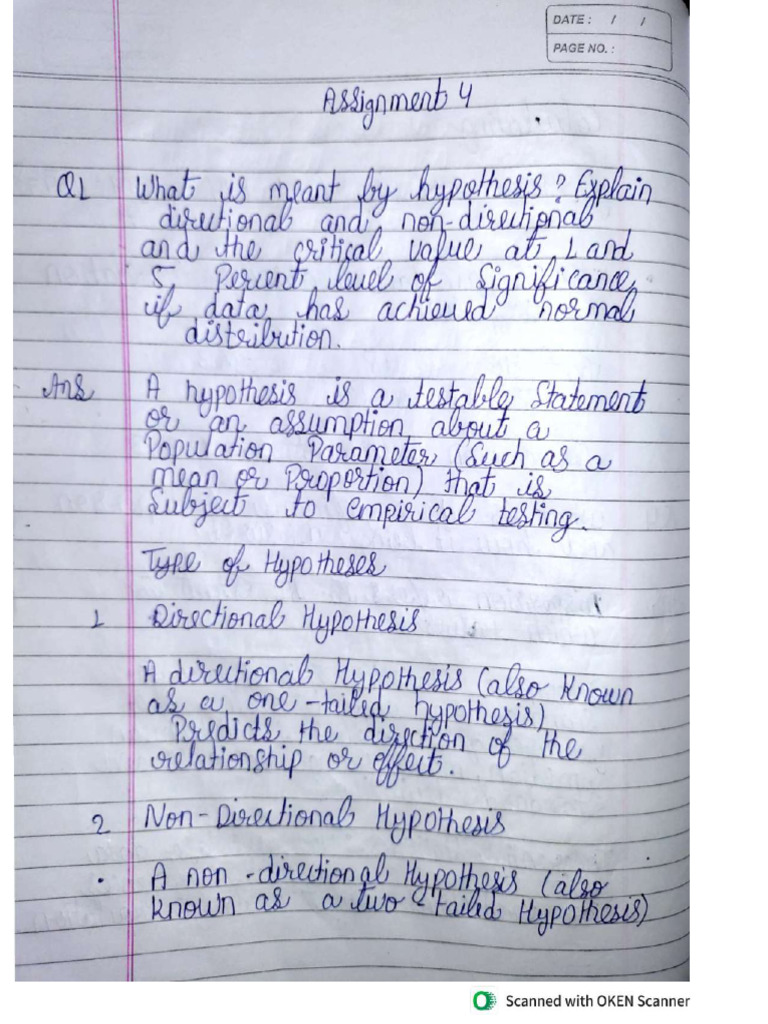 DATE : / /
PAGE NO. :
Assignment 4
Q1 What is meant by hypothesis? Explain
directional and non-directional
and the critical value at 1 and
5 Percent level of significance
if data has achieved normal
distribution.
Ans A hypothesis is a testable Statement
or an assumption about a
Population Parameter (Such as a
mean or Proportion) that is
Subject to empirical testing.
Type of Hypotheses
1 Directional Hypothesis
A directional Hypothesis (also Known
as a one-tailed hypothesis)
Predicts the direction of the
relationship or effect.
2 Non-Directional Hypothesis
• A non-directional Hypothesis (also
known as a two-tailed Hypothesis)
Scanned with OKEN Scanner